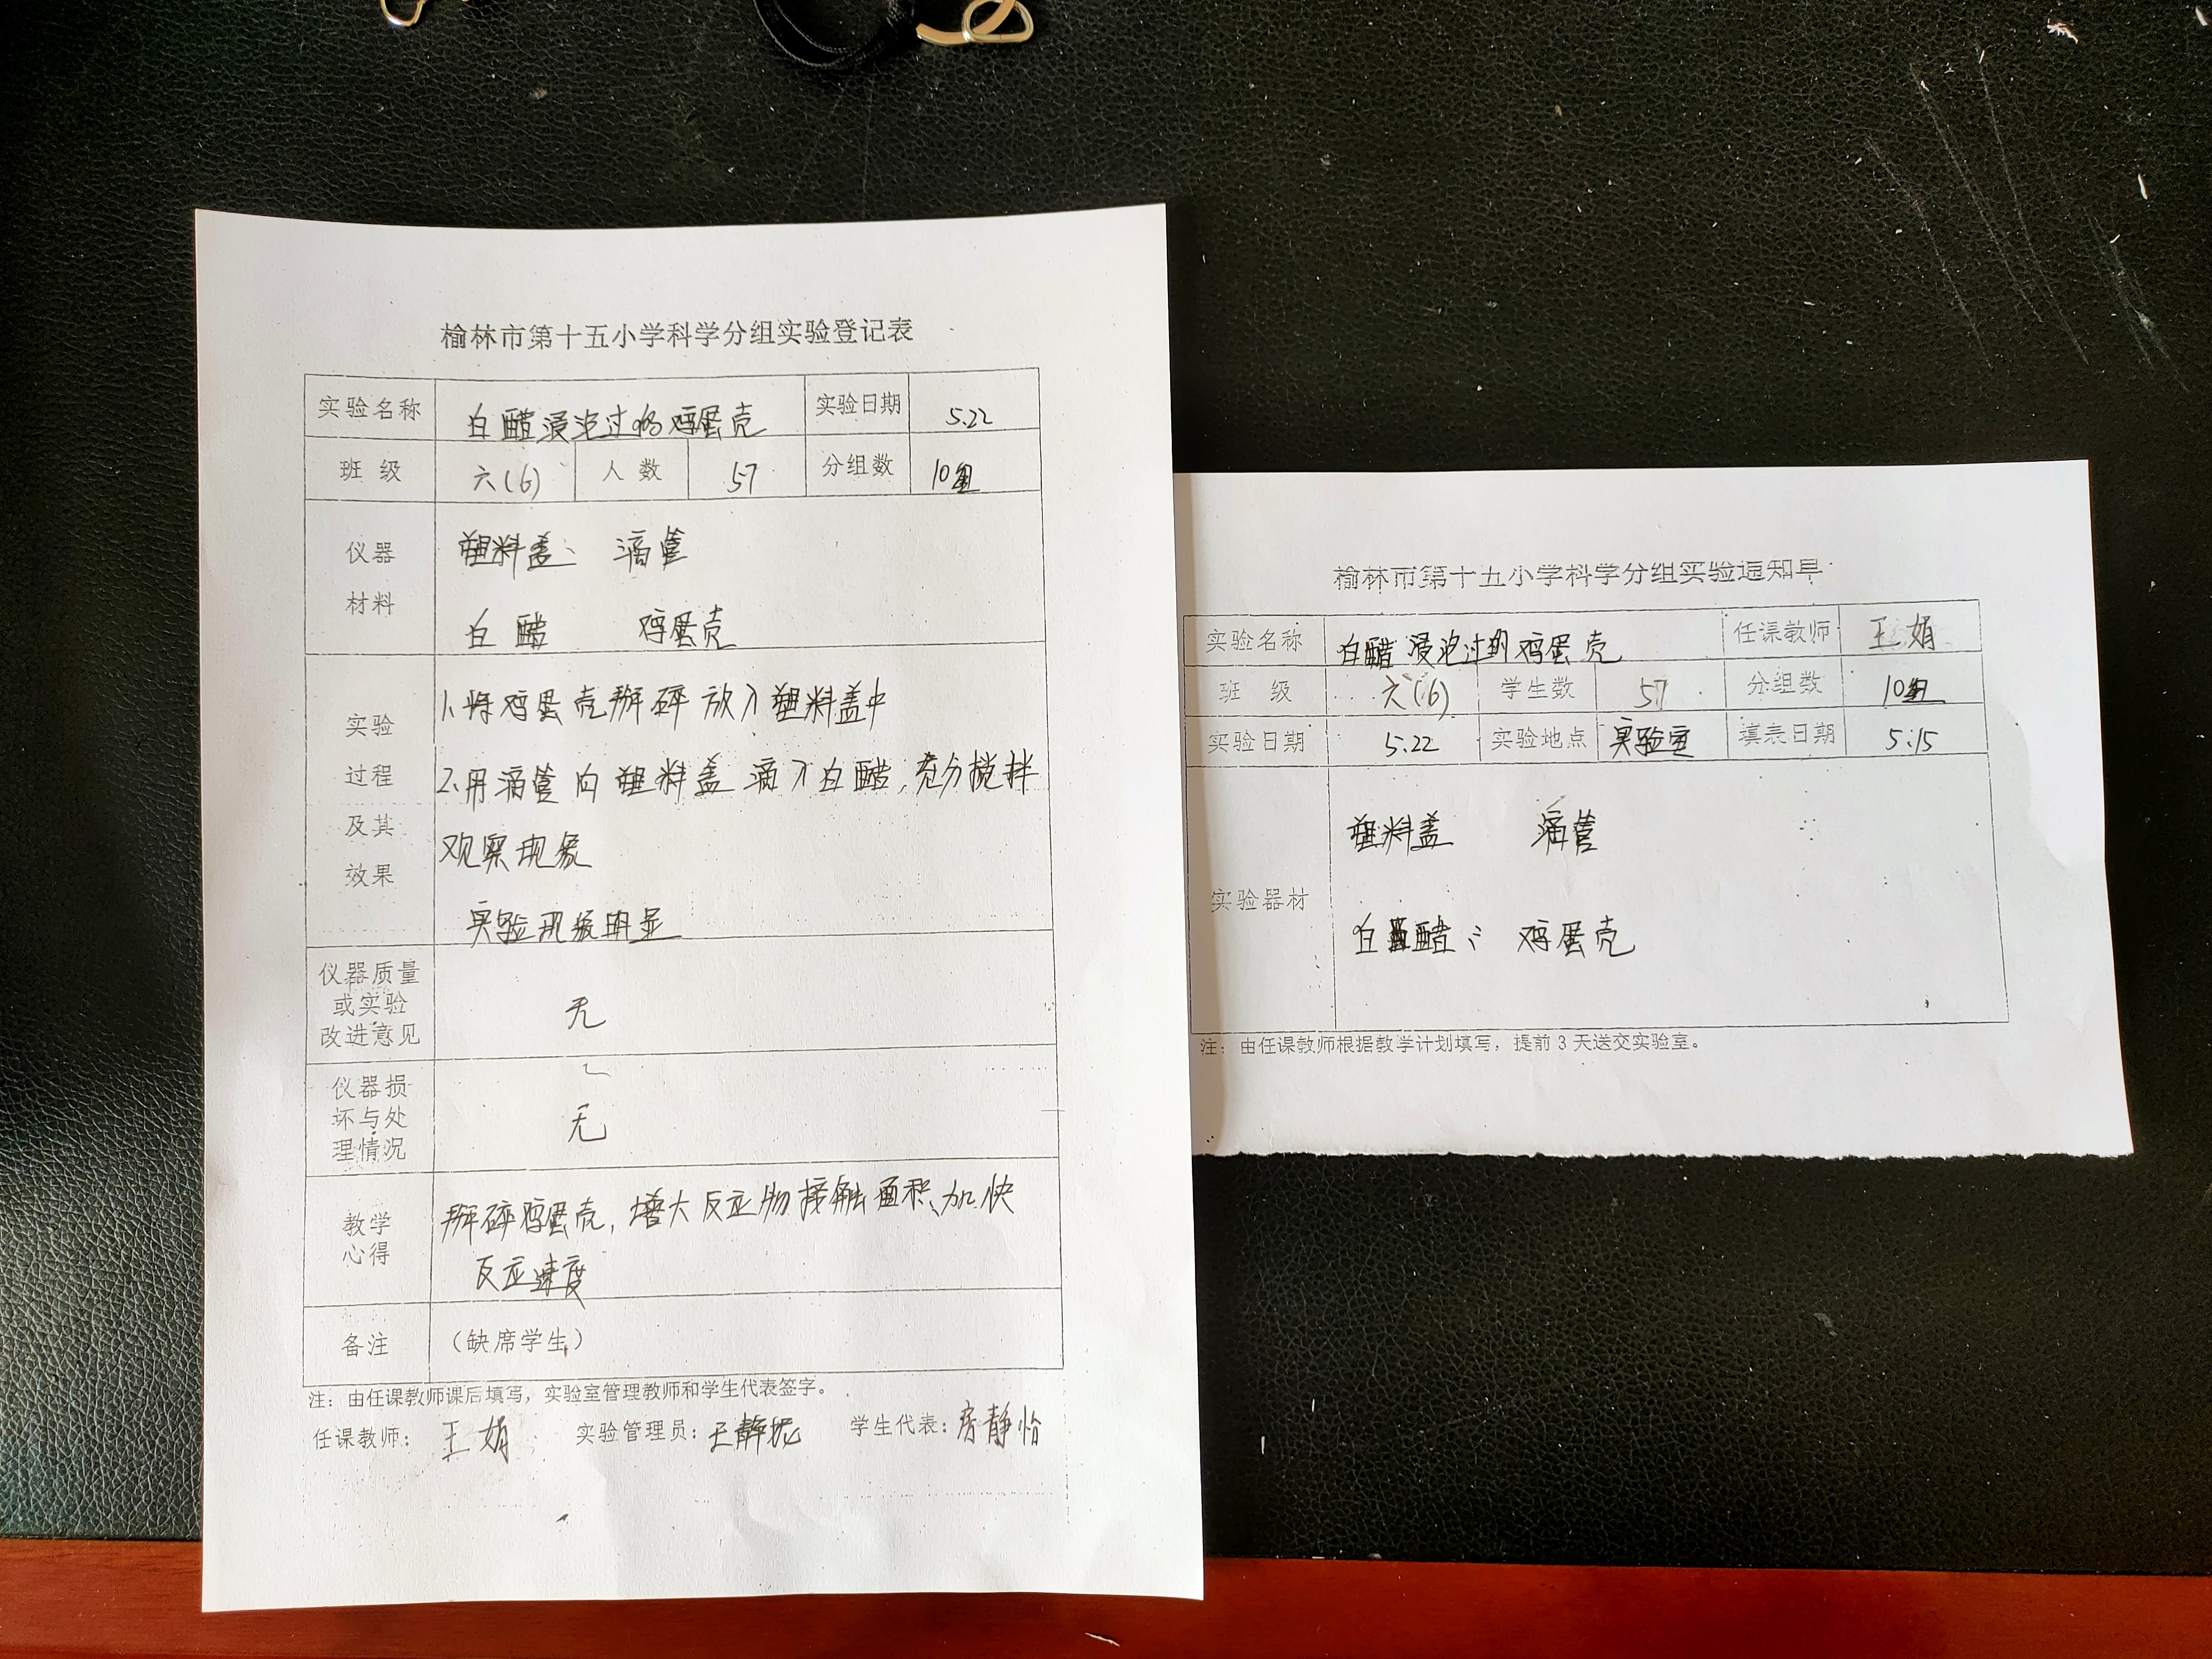 榆林市第十五小学科学分组实验登记表
实验名称 白醋浸泡过的鸡蛋壳 实验日期 5.22
班级 六(6) 人数 57 分组数 10组
仪器材料 塑料盖、 滴管
白醋 鸡蛋壳
实验过程及其效果
1、将鸡蛋壳掰碎放入塑料盖中
2、用滴管向塑料盖滴入白醋,充分搅拌
观察现象
实验现象明显
仪器质量或实验改进意见 无
仪器损坏与处理情况 无
教学心得 掰碎鸡蛋壳,增大反应物接触面积、加快
反应速度
备注 (缺席学生)
注:由任课教师课后填写,实验室管理教师和学生代表签字。
任课教师: 王娟 实验管理员: 王静 学生代表: 房静怡
榆林市第十五小学科学分组实验通知单
实验名称 白醋浸泡过的鸡蛋壳 任课教师 王娟
班级 六(6) 学生数 57 分组数 10组
实验日期 5.22 实验地点 实验室 填表日期 5.15
实验器材 塑料盖 滴管
白醋 鸡蛋壳
注:由任课教师根据教学计划填写,提前3天送交实验室。